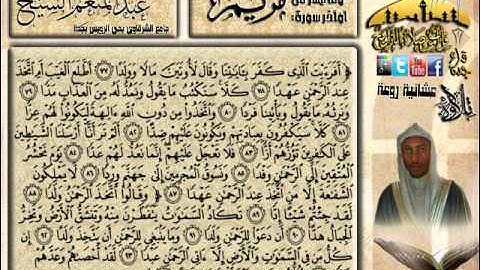 أواخر سورة:
مريم
جامع الشرقاوي بحي الرويس بجدة
﴿ أَفَرَءَيْتَ ٱلَّذِى كَفَرَ بِـَٔايَٰتِنَا وَقَالَ لَأُوتَيَنَّ مَالًا وَوَلَدًا ٧٧ أَطَّلَعَ ٱلْغَيْبَ أَمِ ٱتَّخَذَ
عِندَ ٱلرَّحْمَٰنِ عَهْدًا ٧٨ كَلَّا سَنَكْتُبُ مَا يَقُولُ وَنَمُدُّ لَهُۥ مِنَ ٱلْعَذَابِ مَدًّا ٧٩
وَنَرِثُهُۥ مَا يَقُولُ وَيَأْتِينَا فَرْدًا ٨٠ وَٱتَّخَذُوا۟ مِن دُونِ ٱللَّهِ ءَالِهَةً لِّيَكُونُوا۟ لَهُمْ عِزًّا
٨١ كَلَّا سَيَكْفُرُونَ بِعِبَادَتِهِمْ وَيَكُونُونَ عَلَيْهِمْ ضِدًّا ٨٢ أَلَمْ تَرَ أَنَّآ أَرْسَلْنَا ٱلشَّيَٰطِينَ
عَلَى ٱلْكَٰفِرِينَ تَؤُزُّهُمْ أَزًّا ٨٣ فَلَا تَعْجَلْ عَلَيْهِمْ إِنَّمَا نَعُدُّ لَهُمْ عَدًّا ٨٤ يَوْمَ نَحْشُرُ
ٱلْمُتَّقِينَ إِلَى ٱلرَّحْمَٰنِ وَفْدًا ٨٥ وَنَسُوقُ ٱلْمُجْرِمِينَ إِلَىٰ جَهَنَّمَ وِرْدًا ٨٦ لَّا يَمْلِكُونَ
ٱلشَّفَٰعَةَ إِلَّا مَنِ ٱتَّخَذَ عِندَ ٱلرَّحْمَٰنِ عَهْدًا ٨٧ وَقَالُوا۟ ٱتَّخَذَ ٱلرَّحْمَٰنُ وَلَدًا ٨٨
لَّقَدْ جِئْتُمْ شَيْـًٔا إِدًّا ٨٩ تَكَادُ ٱلسَّمَٰوَٰتُ يَتَفَطَّرْنَ مِنْهُ وَتَنشَقُّ ٱلْأَرْضُ وَتَخِرُّ
ٱلْجِبَالُ هَدًّا ٩٠ أَن دَعَوْا۟ لِلرَّحْمَٰنِ وَلَدًا ٩١ وَمَا يَنۢبَغِى لِلرَّحْمَٰنِ أَن يَتَّخِذَ وَلَدًا ٩٢ إِن
كُلُّ مَن فِى ٱلسَّمَٰوَٰتِ وَٱلْأَرْضِ إِلَّآ ءَاتِى ٱلرَّحْمَٰنِ عَبْدًا ٩٣ لَّقَدْ أَحْصَىٰهُمْ وَعَدَّهُمْ
قراء جدة
You Tube
تلاوة
عشائية روعة